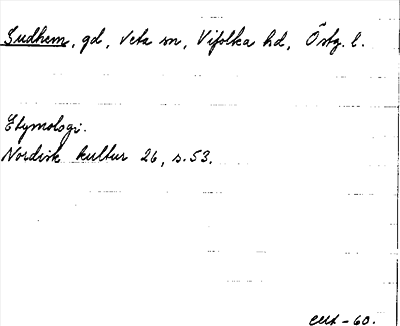 Sudhem, gd, Veta sn, Vifolka hd, Östg. l.
Etymologi.
Nordisk kultur 26, s. 53.